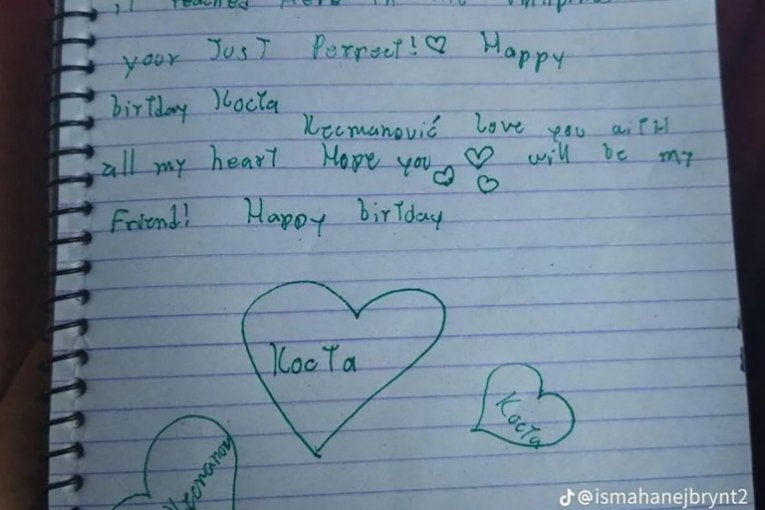 your JusT Perfect! Happy
birTday Kocta
Kecmanović love you aiTH
all my heart Hope you will be my
Friend! Happy birTday
KocTa
KocTa
Kecmanov
@ismahanejbrynt2